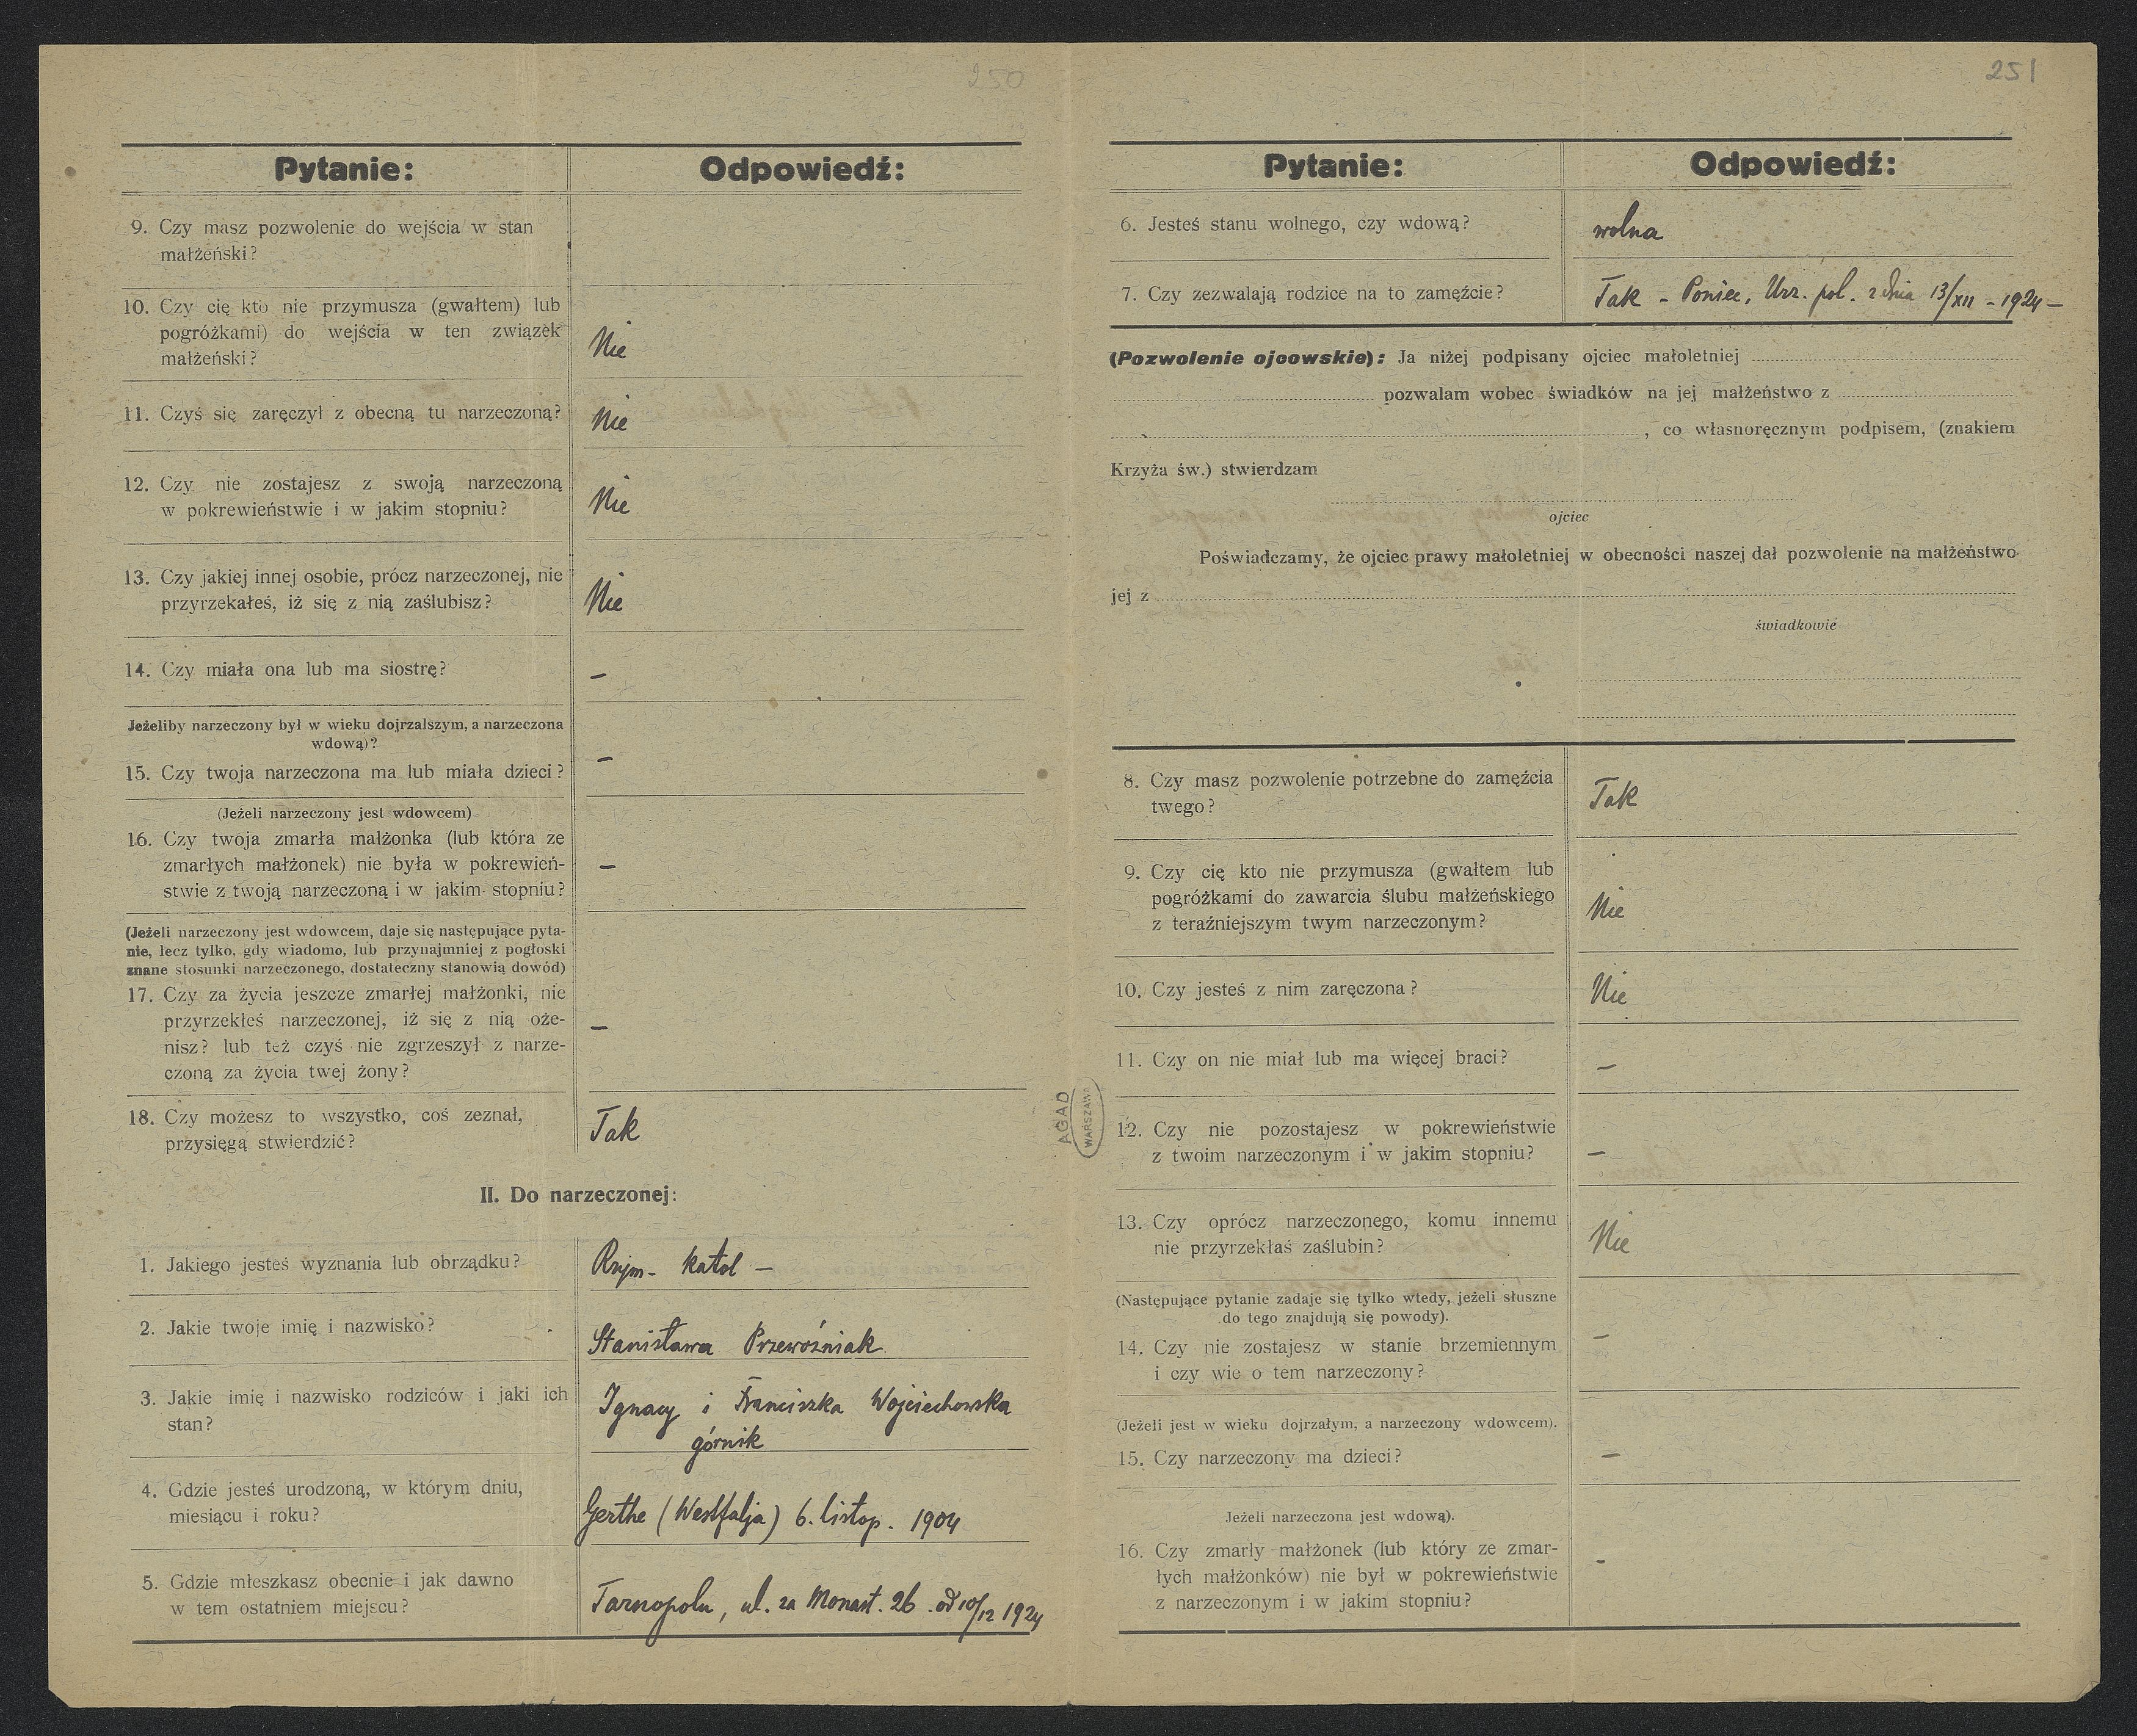 250
Pytanie:
Odpowiedź:
9. Czy masz pozwolenie do wejścia w stan
małżeński?
10. Czy cię kto nie przymusza (gwałtem) lub
pogróżkami) do wejścia w ten związek
małżeński?
Nie
11. Czyś się zaręczył z obecną tu narzeczoną?
Nie
12. Czy nie zostajesz z swoją narzeczoną
w pokrewieństwie i w jakim stopniu?
Nie
13. Czy jakiej innej osobie, prócz narzeczonej, nie
przyrzekałeś, iż się z nią zaślubisz?
Nie
14. Czy miała ona lub ma siostrę?
—
Jeżeliby narzeczony był w wieku dojrzalszym, a narzeczona
wdową)?
15. Czy twoja narzeczona ma lub miała dzieci?
—
(Jeżeli narzeczony jest wdowcem)
16. Czy twoja zmarła małżonka (lub która ze
zmarłych małżonek) nie była w pokrewień-
stwie z twoją narzeczoną i w jakim stopniu?
—
(Jeżeli narzeczony jest wdowcem, daje się następujące pyta-
nie, lecz tylko, gdy wiadomo, lub przynajmniej z pogłoski
znane stosunki narzeczonego, dostateczny stanowią dowód)
17. Czy za życia jeszcze zmarłej małżonki, nie
przyrzekłeś narzeczonej, iż się z nią oże-
nisz? lub też czyś nie zgrzeszył z narze-
czoną za życia twej żony?
—
18. Czy możesz to wszystko, coś zeznał,
przysięgą stwierdzić?
Tak
II. Do narzeczonej:
1. Jakiego jesteś wyznania lub obrządku?
Rzym- katol —
2. Jakie twoje imię i nazwisko?
Stanisława Przewoźniak
3. Jakie imię i nazwisko rodziców i jaki ich
stan?
Ignacy i Franciszka Wojciechowska
górnik
4. Gdzie jesteś urodzoną, w którym dniu,
miesiącu i roku?
Gerthe (Westfalja) 6. listop. 1904
5. Gdzie mieszkasz obecnie i jak dawno
w tem ostatniem miejscu?
Tarnopolu, ul. za Monast. 26 . od 10/12 1924
AGAD
WARSZAWA
251
Pytanie:
Odpowiedź:
6. Jesteś stanu wolnego, czy wdową?
wolna
7. Czy zezwalają rodzice na to zamęźcie?
Tak - Poniec, Urz. pol. z dnia 13/XII - 1924 —
(Pozwolenie ojcowskie): Ja niżej podpisany ojciec małoletniej
pozwalam wobec świadków na jej małżeństwo z
, co własnoręcznym podpisem, (znakiem
Krzyża św.) stwierdzam
ojciec
Poświadczamy, że ojciec prawy małoletniej w obecności naszej dał pozwolenie na małżeństwo
jej z
świadkowie
8. Czy masz pozwolenie potrzebne do zamęźcia
twego?
Tak
9. Czy cię kto nie przymusza (gwałtem lub
pogróżkami do zawarcia ślubu małżeńskiego
z teraźniejszym twym narzeczonym?
Nie
10. Czy jesteś z nim zaręczona?
Nie
11. Czy on nie miał lub ma więcej braci?
—
12. Czy nie pozostajesz w pokrewieństwie
z twoim narzeczonym i w jakim stopniu?
—
13. Czy oprócz narzeczonego, komu innemu
nie przyrzekłaś zaślubin?
Nie
(Następujące pytanie zadaje się tylko wtedy, jeżeli słuszne
do tego znajdują się powody).
14. Czy nie zostajesz w stanie brzemiennym
i czy wie o tem narzeczony?
—
(Jeżeli jest w wieku dojrzałym, a narzeczony wdowcem).
15. Czy narzeczony ma dzieci?
—
Jeżeli narzeczona jest wdową).
16. Czy zmarły małżonek (lub który ze zmar-
łych małżonków) nie był w pokrewieństwie
z narzeczonym i w jakim stopniu?
-